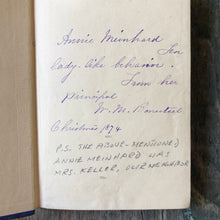 Annie Meinhard
For
lady-like behavior.
From her
principal
W. M. Bonesteel
Christmas 1874
P.S. THE ABOVE-MENTIONED
ANNIE MEINHARD WAS
MRS. KELLER, OUR NEIGHBOR